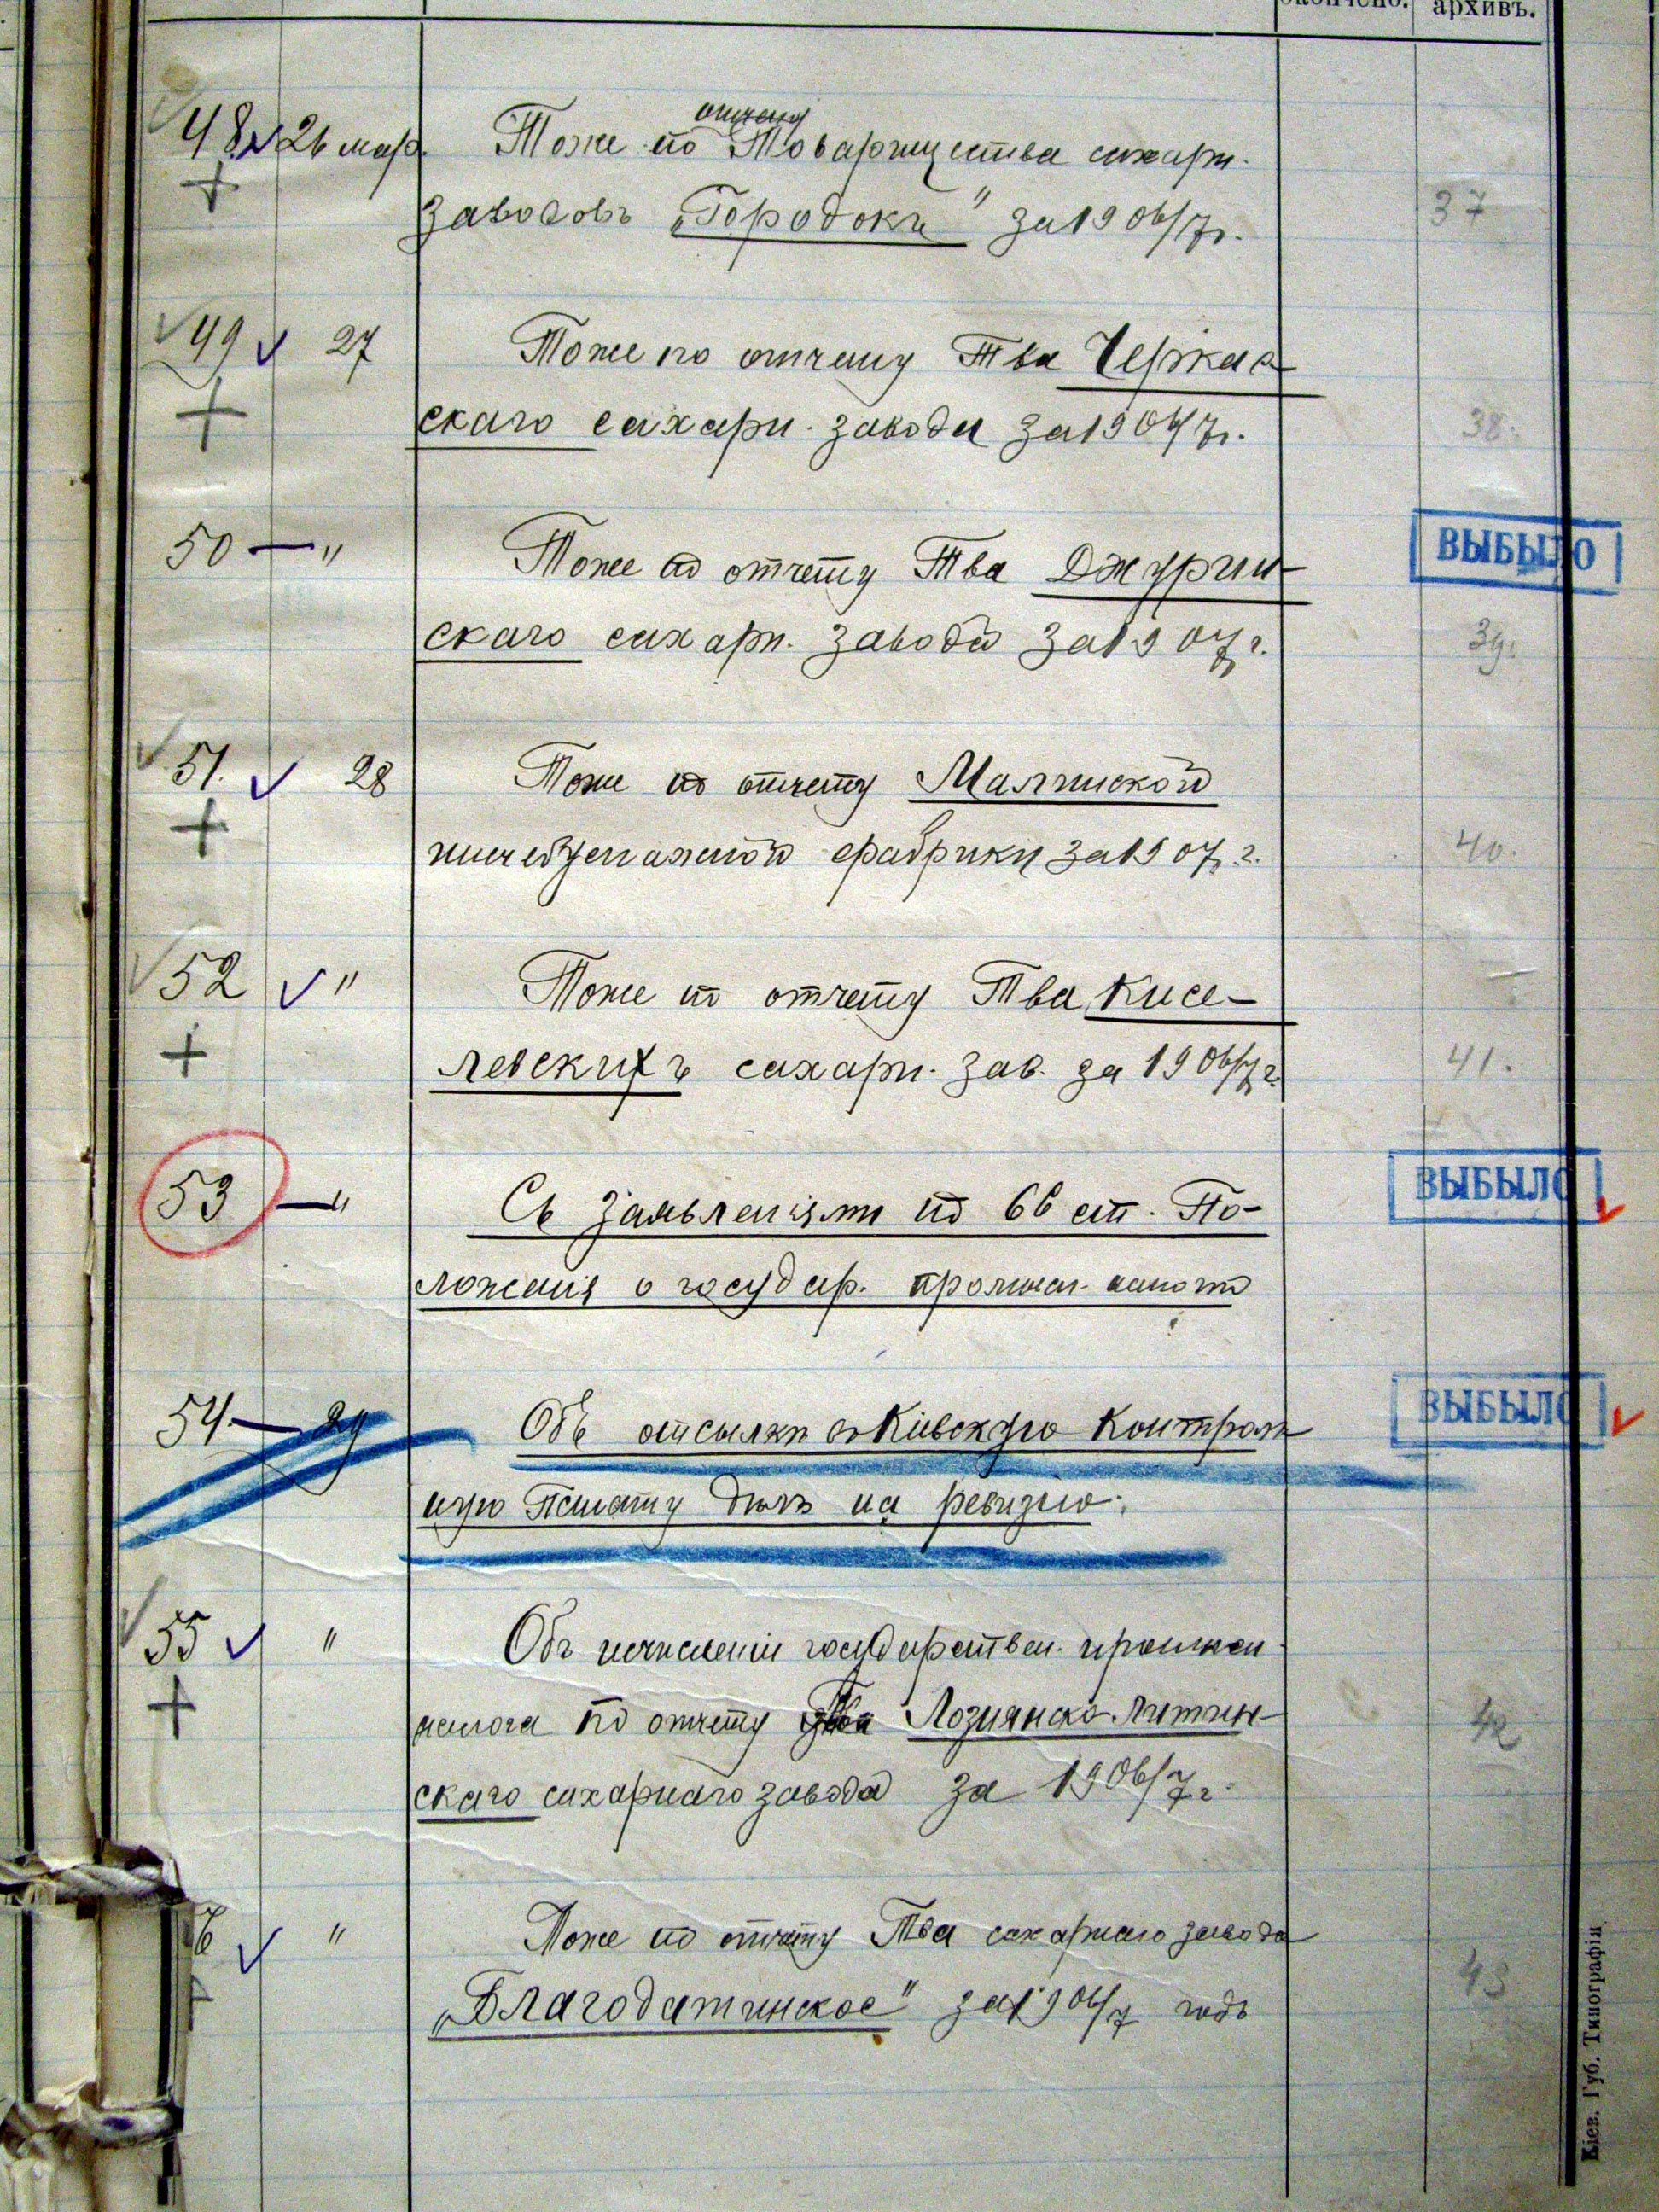 окончено. архивъ.
48 26 мар. Тоже по отчету Товарищества сахарн.
заводовъ „Городокъ" за 1906/7 г. 37
49 27 Тоже по отчету Тва Черкас-
скаго сахарн. завода за 1906/7 г. 38.
50 — " Тоже по отчету Тва Джурин- ВЫБЫЛО
скаго сахарн. завода за 1907 г. 39.
51. 28 Тоже по отчету Малинской
писчебумажной фабрики за 1907 г. 40.
52 " Тоже по отчету Тва Кисе- —
левскихъ сахарн. зав. за 1906/7 г. 41.
53 — " Съ заявленіями по 66 ст. По- ВЫБЫЛО
ложенія о государ. промысл. налогѣ
54 — 29 Объ отсылкѣ въ Кіевскую Контроль ВЫБЫЛО
ную Палату дѣлъ на ревизію.
55 " Объ исчисленіи государствен. промысл.
налога по отчету Тва Лозняно-Литин-
скаго сахарнаго завода за 1906/7 г. 42
6 " Тоже по отчету Тва сахарнаго завода
„Благодатинское" за 1906/7 годъ 43
Кіев. Губ. Типографія